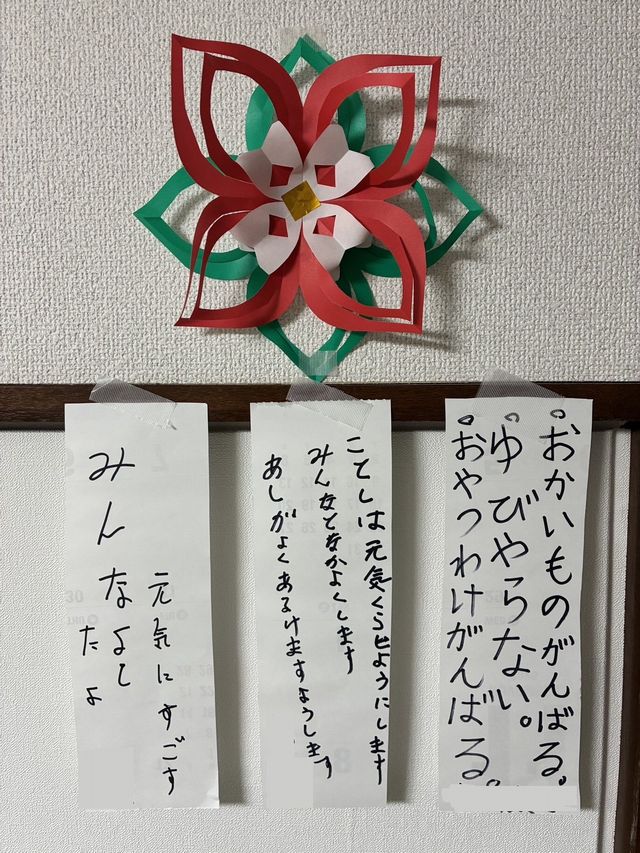 ・おかいものがんばる。
・ゆびやらない。
・おやつわけがんばる。
ことしは元気くらせようにします
みんなとなかよくします
あしがよくあるけますようします
元気にすごす
みんななよし
たよ